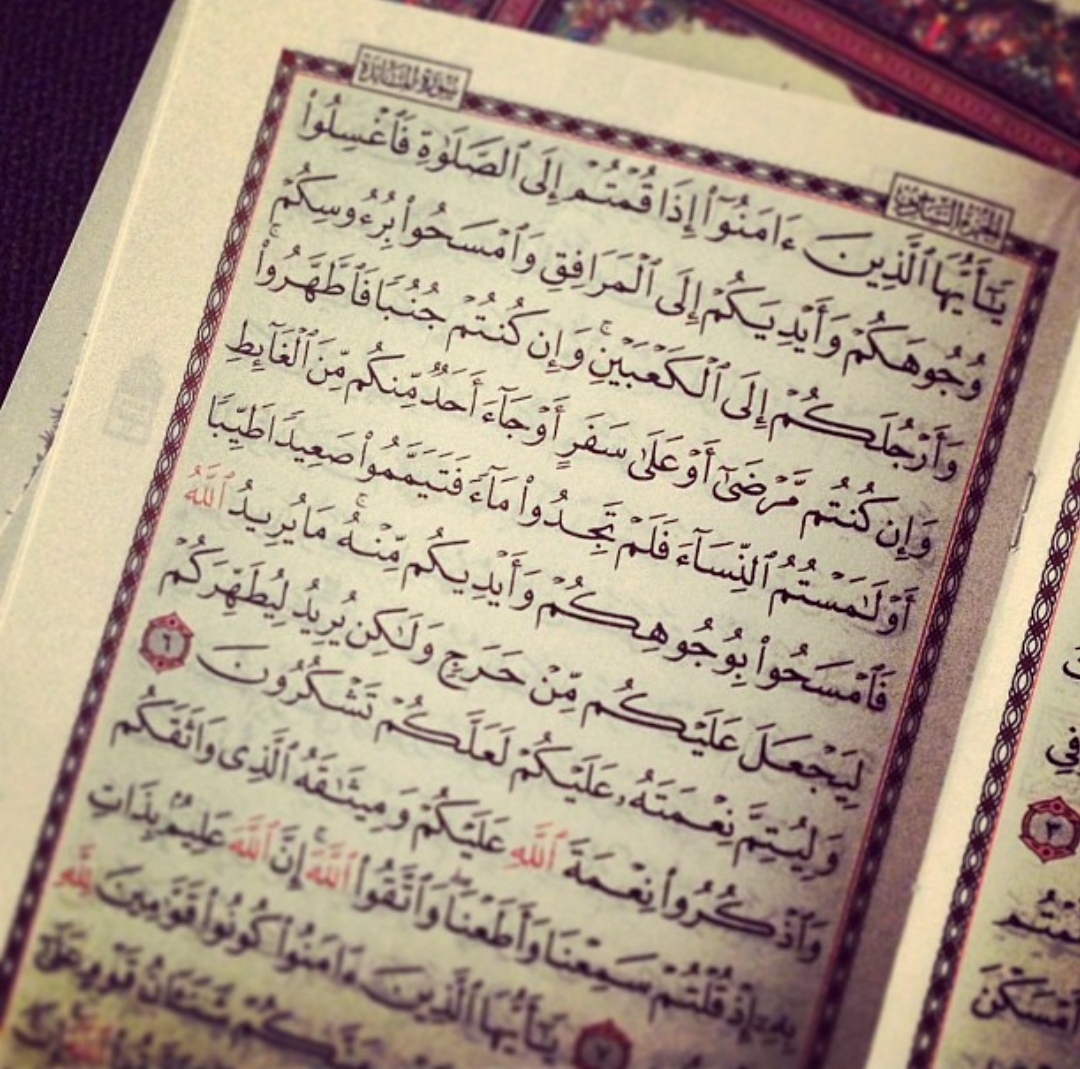 سورة المائدة
الجزء السادس
يَٰٓأَيُّهَا ٱلَّذِينَ ءَامَنُوٓا۟ إِذَا قُمْتُمْ إِلَى ٱلصَّلَوٰةِ فَٱغْسِلُوا۟
وُجُوهَكُمْ وَأَيْدِيَكُمْ إِلَى ٱلْمَرَافِقِ وَٱمْسَحُوا۟ بِرُءُوسِكُمْ
وَأَرْجُلَكُمْ إِلَى ٱلْكَعْبَيْنِ ۚ وَإِن كُنتُمْ جُنُبًا فَٱطَّهَّرُوا۟ ۚ
وَإِن كُنتُم مَّرْضَىٰٓ أَوْ عَلَىٰ سَفَرٍ أَوْ جَآءَ أَحَدٌ مِّنكُم مِّنَ ٱلْغَآئِطِ
أَوْ لَٰمَسْتُمُ ٱلنِّسَآءَ فَلَمْ تَجِدُوا۟ مَآءً فَتَيَمَّمُوا۟ صَعِيدًا طَيِّبًا
فَٱمْسَحُوا۟ بِوُجُوهِكُمْ وَأَيْدِيكُم مِّنْهُ ۚ مَا يُرِيدُ ٱللَّهُ
لِيَجْعَلَ عَلَيْكُم مِّنْ حَرَجٍ وَلَٰكِن يُرِيدُ لِيُطَهِّرَكُمْ
وَلِيُتِمَّ نِعْمَتَهُۥ عَلَيْكُمْ لَعَلَّكُمْ تَشْكُرُونَ ٦
وَٱذْكُرُوا۟ نِعْمَةَ ٱللَّهِ عَلَيْكُمْ وَمِيثَٰقَهُ ٱلَّذِى وَاثَقَكُم
بِهِۦٓ إِذْ قُلْتُمْ سَمِعْنَا وَأَطَعْنَا ۖ وَٱتَّقُوا۟ ٱللَّهَ ۚ إِنَّ ٱللَّهَ عَلِيمٌۢ بِذَاتِ
٧ يَٰٓأَيُّهَا ٱلَّذِينَ ءَامَنُوا۟ كُونُوا۟ قَوَّٰمِينَ لِلَّهِ
شَنَـَٔانُ قَوْمٍ عَلَىٰٓ
فِي
٣